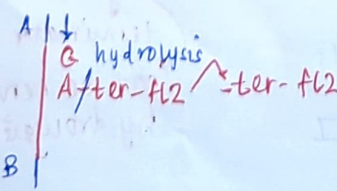 A ↓
G hydrolysis
After-fl2 ter-fl2
B